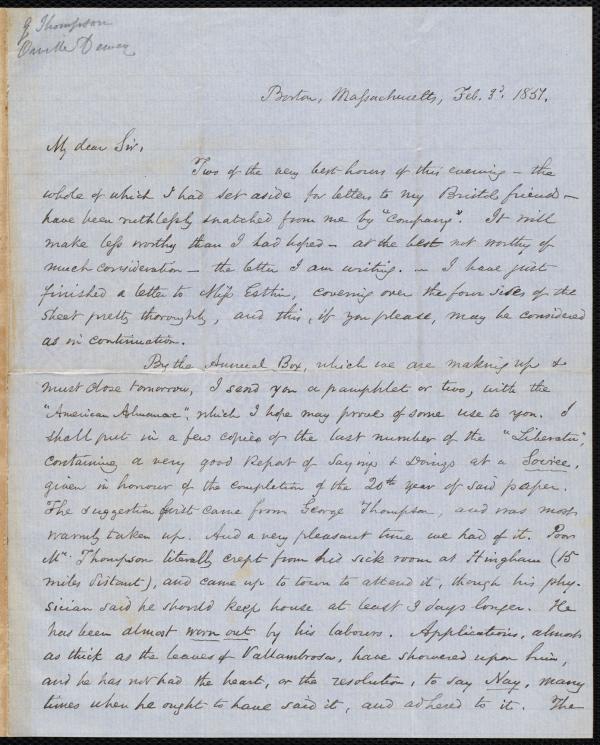 G Thompson
Orville Dewey
Boston, Massachusetts, Feb. 3d. 1851.
My dear Sir,
Two of the very best hours of this evening — the
whole of which I had set aside for letters to my Bristol friends —
have been ruthlessly snatched from me by "company". It will
make less worthy than I had hoped — at the best not worthy of
much consideration — the letter I am writing. — I have just
finished a letter to Miss Estlin, covering over the four sides of the
sheet pretty thoroughly, and this, if you please, may be considered
as in continuation.
By the Annual Box, which we are making up &
must close tomorrow, I send you a pamphlet or two, with the
"American Almanac", which I hope may prove of some use to you. I
shall put in a few copies of the last number of the "Liberator",
containing a very good Report of Sayings & Doings at a Soiree,
given in honour of the completion of the 20th year of said paper.
The suggestion first came from George Thompson, and was most
warmly taken up. And a very pleasant time we had of it. Poor
Mr. Thompson literally crept from his sick room at Hingham (15
miles distant), and came up to town to attend it, though his phy-
sician said he should keep house at least 3 days longer. He
has been almost worn out by his labours. Applications, almost
as thick as the leaves of Vallambrosa, have showered upon him,
and he has not had the heart, or the resolution, to say Nay, many
times when he ought to have said it, and adhered to it. The